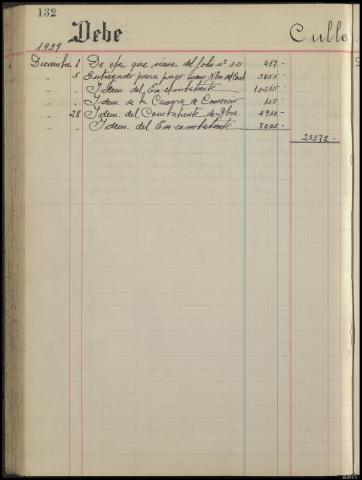 132
Debe
Culle
1939
Diciembre 1 De cta que viene del folio nº 431 417 -
" 5 Entregado para pago 3855 -
" " Idem. del Ex-combatiente
" " Idem de la Camara de Comercio 150 -
" 28 Idem. del Combatiente
" " Idem. del Ex-combatiente 7005 -
25372 -